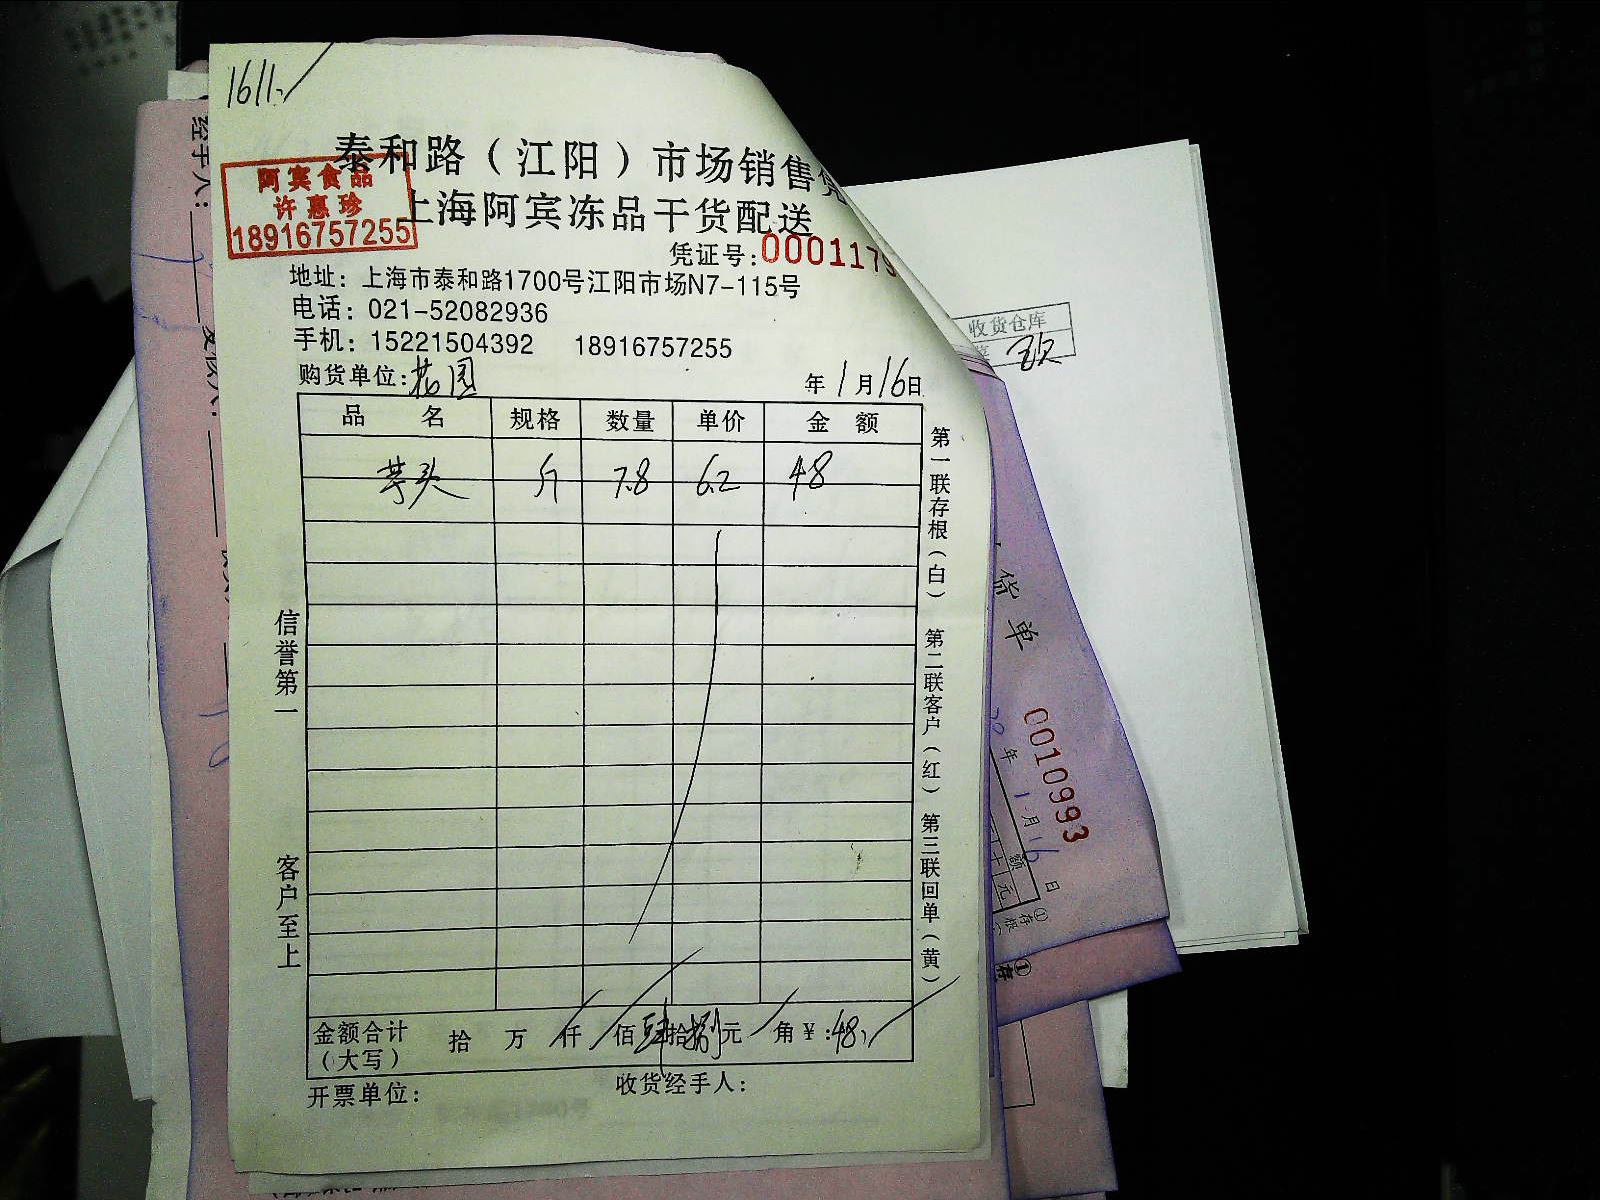 1611
泰和路（江阳）市场销售凭
上海阿宾冻品干货配送
阿宾食品
许惠珍
18916757255
凭证号:0001179
地址：上海市泰和路1700号江阳市场N7-115号
电话：021-52082936
手机：15221504392 18916757255
购货单位:花园 年1月16日
品名 规格 数量 单价 金额
芋头 斤 7.8 6.2 48
金额合计（大写） 拾 万 仟 佰肆拾捌元 角￥:48
开票单位: 收货经手人:
信誉第一 客户至上
第一联存根（白） 第二联客户（红） 第三联回单（黄）
经手人:
收货仓库
货单
0010993
20年1月16日
额
十元
①存根
①存